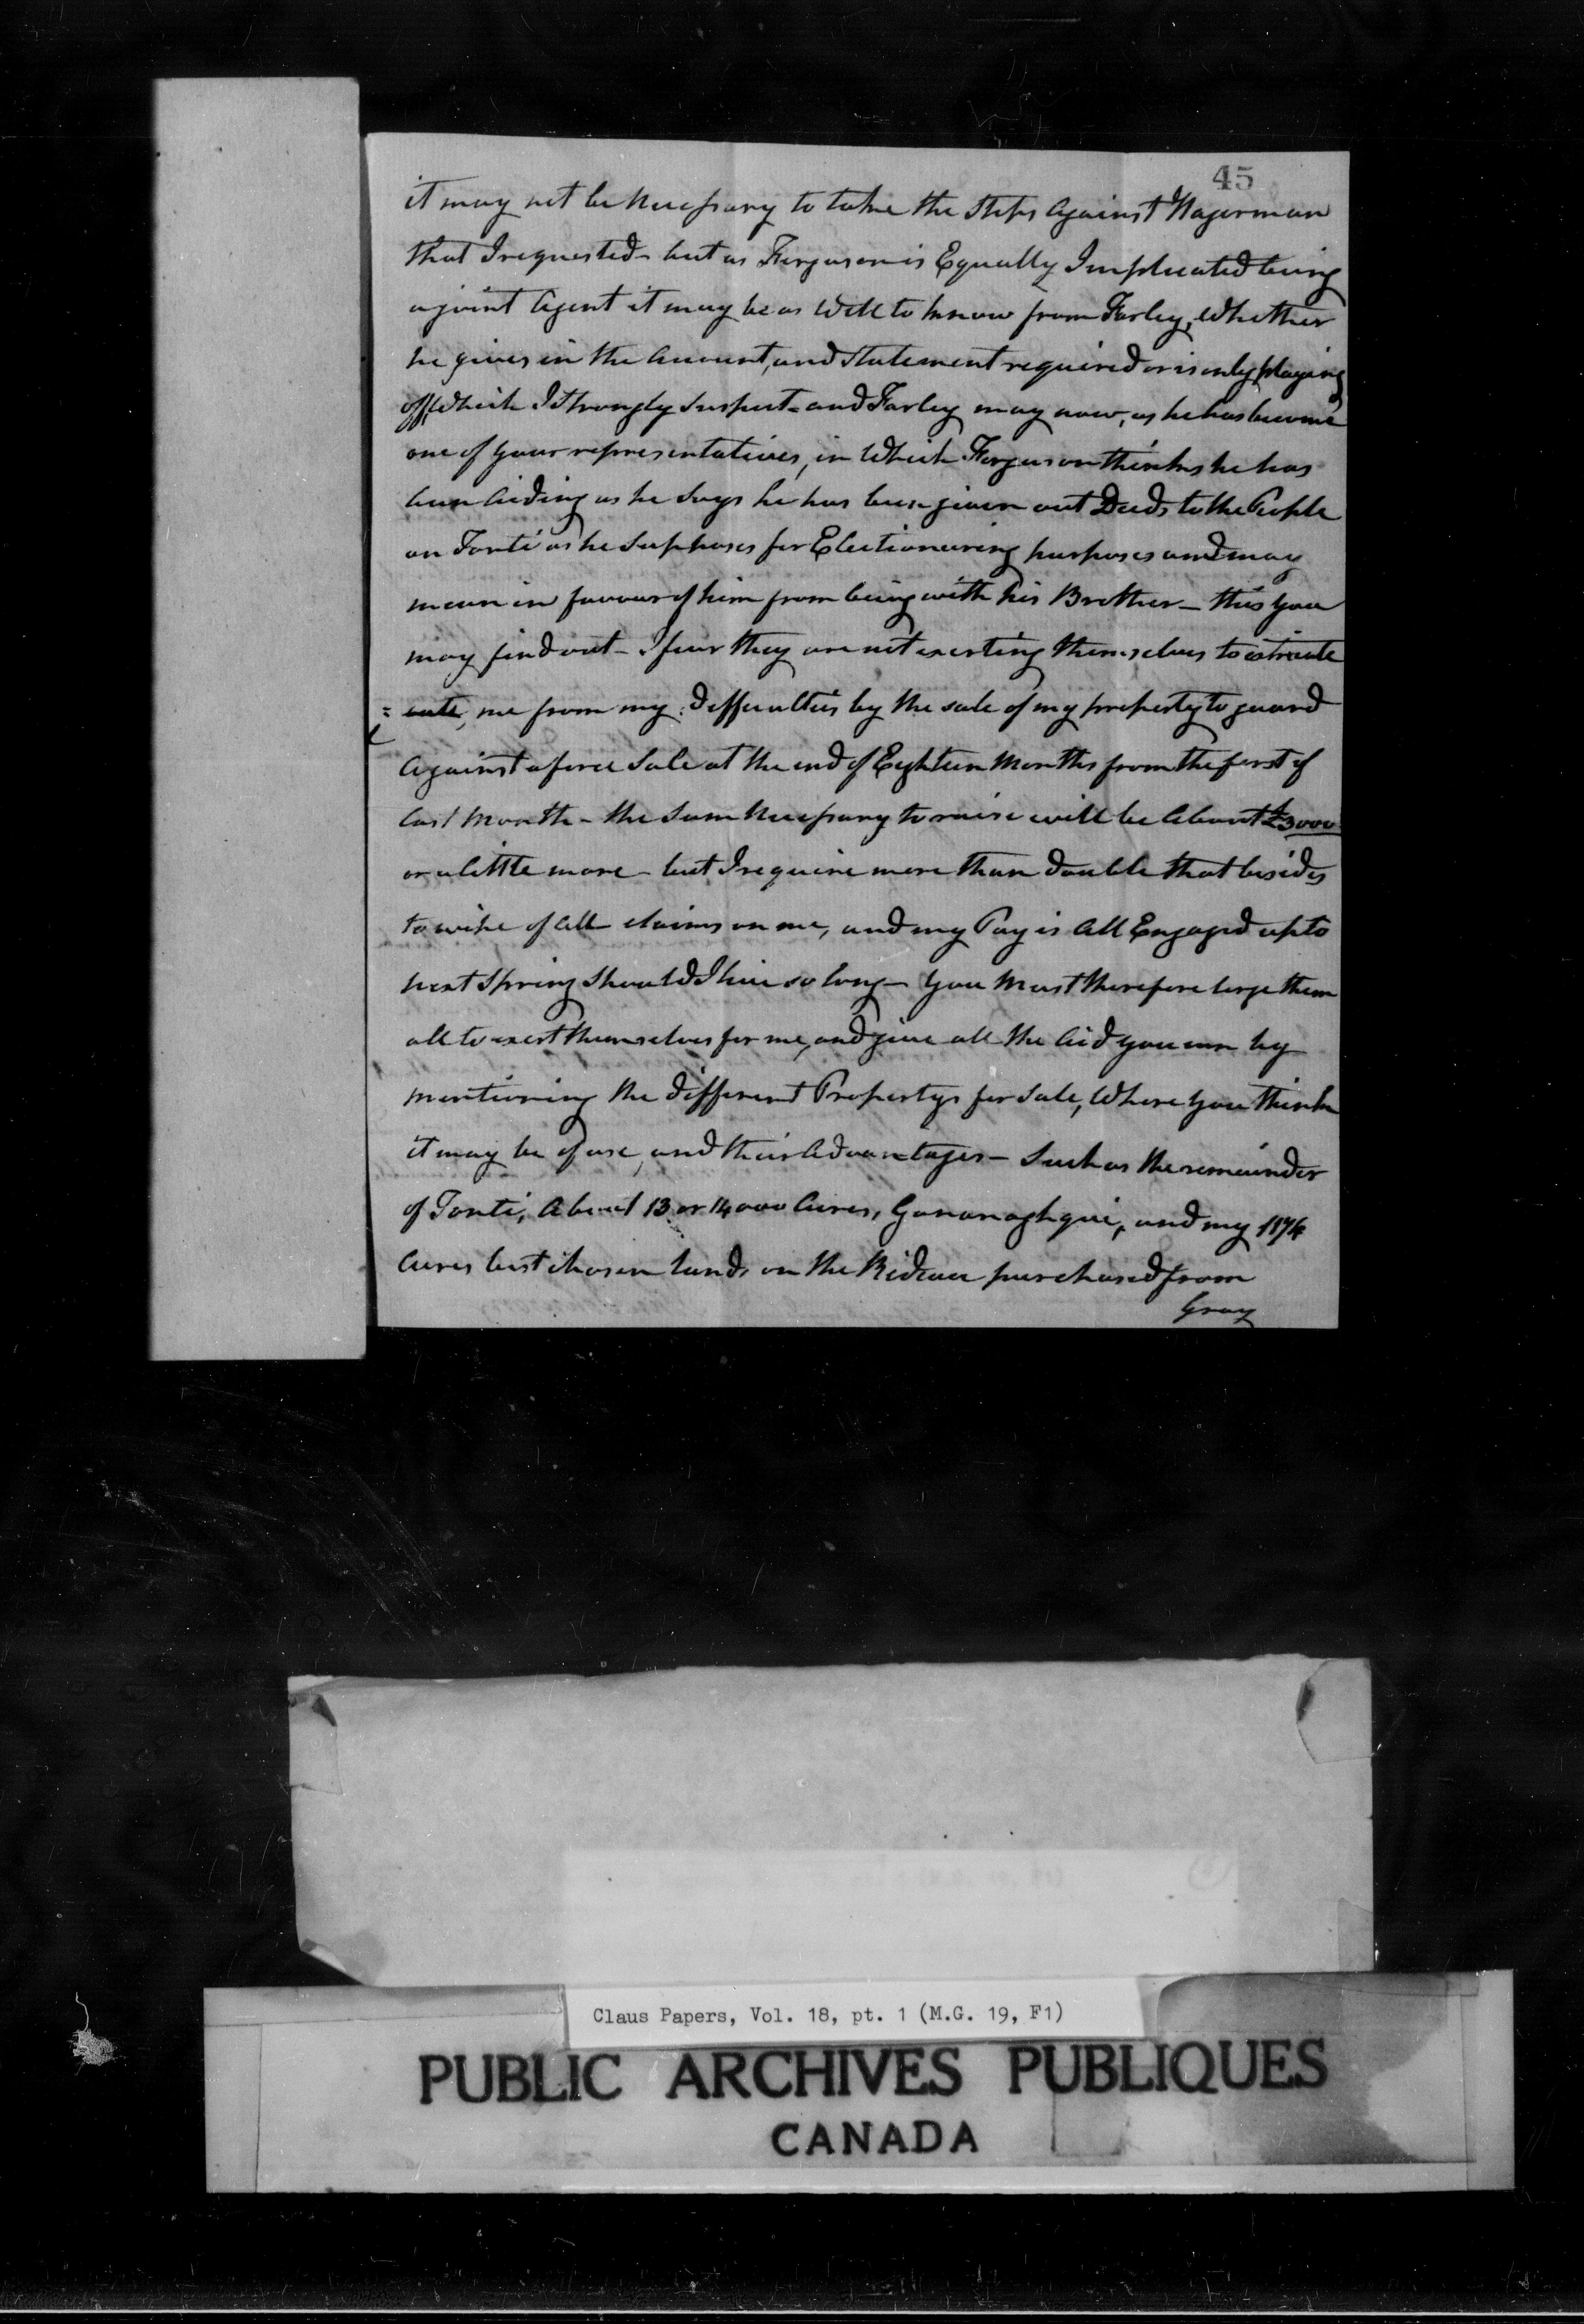 45
it may not be Necessary to take the steps Against Hagerman
that I requested - but as Ferguson is Equally Implicated being
a joint Agent it may be as Well to know from Farley, Whether
he gives in the Account, and statement required or is only playing
off which I strongly suspect - and Farley may now, as he has become
one of your representatives, in Which Ferguson thinks he has
been Aiding as he Says he has been given out Deeds to the People
on Tonti as he Supposes for Electioneering purposes and may
mean in favour of him from being with his Brother - this you
may find out - I fear they are not exerting themselves to extricate
= cate, me from my difficulties by the sale of my property to guard
Against a force Sale at the end of Eighteen Months from the first of
last Month - the Sum Necessary to raise will be About £3000
or a little more - but I require more than double that besides
to wipe of all claims on me, and my Pay is All Engaged up to
next Spring Should I live so long - You Must therefore Urge them
all to exert themselves for me, and give all the Aid you can by
mentioning the different Propertys for Sale, Where You think
it may be of use, and their Advantages - Such as the remainder
of Tonti, About 13 or 14000 Acres, Gananoghqui, and my 1174
Acres best chosen lands on the Rideau purchased from
Gray
Claus Papers, Vol. 18, pt. 1 (M.G. 19, F1)
PUBLIC ARCHIVES PUBLIQUES
CANADA